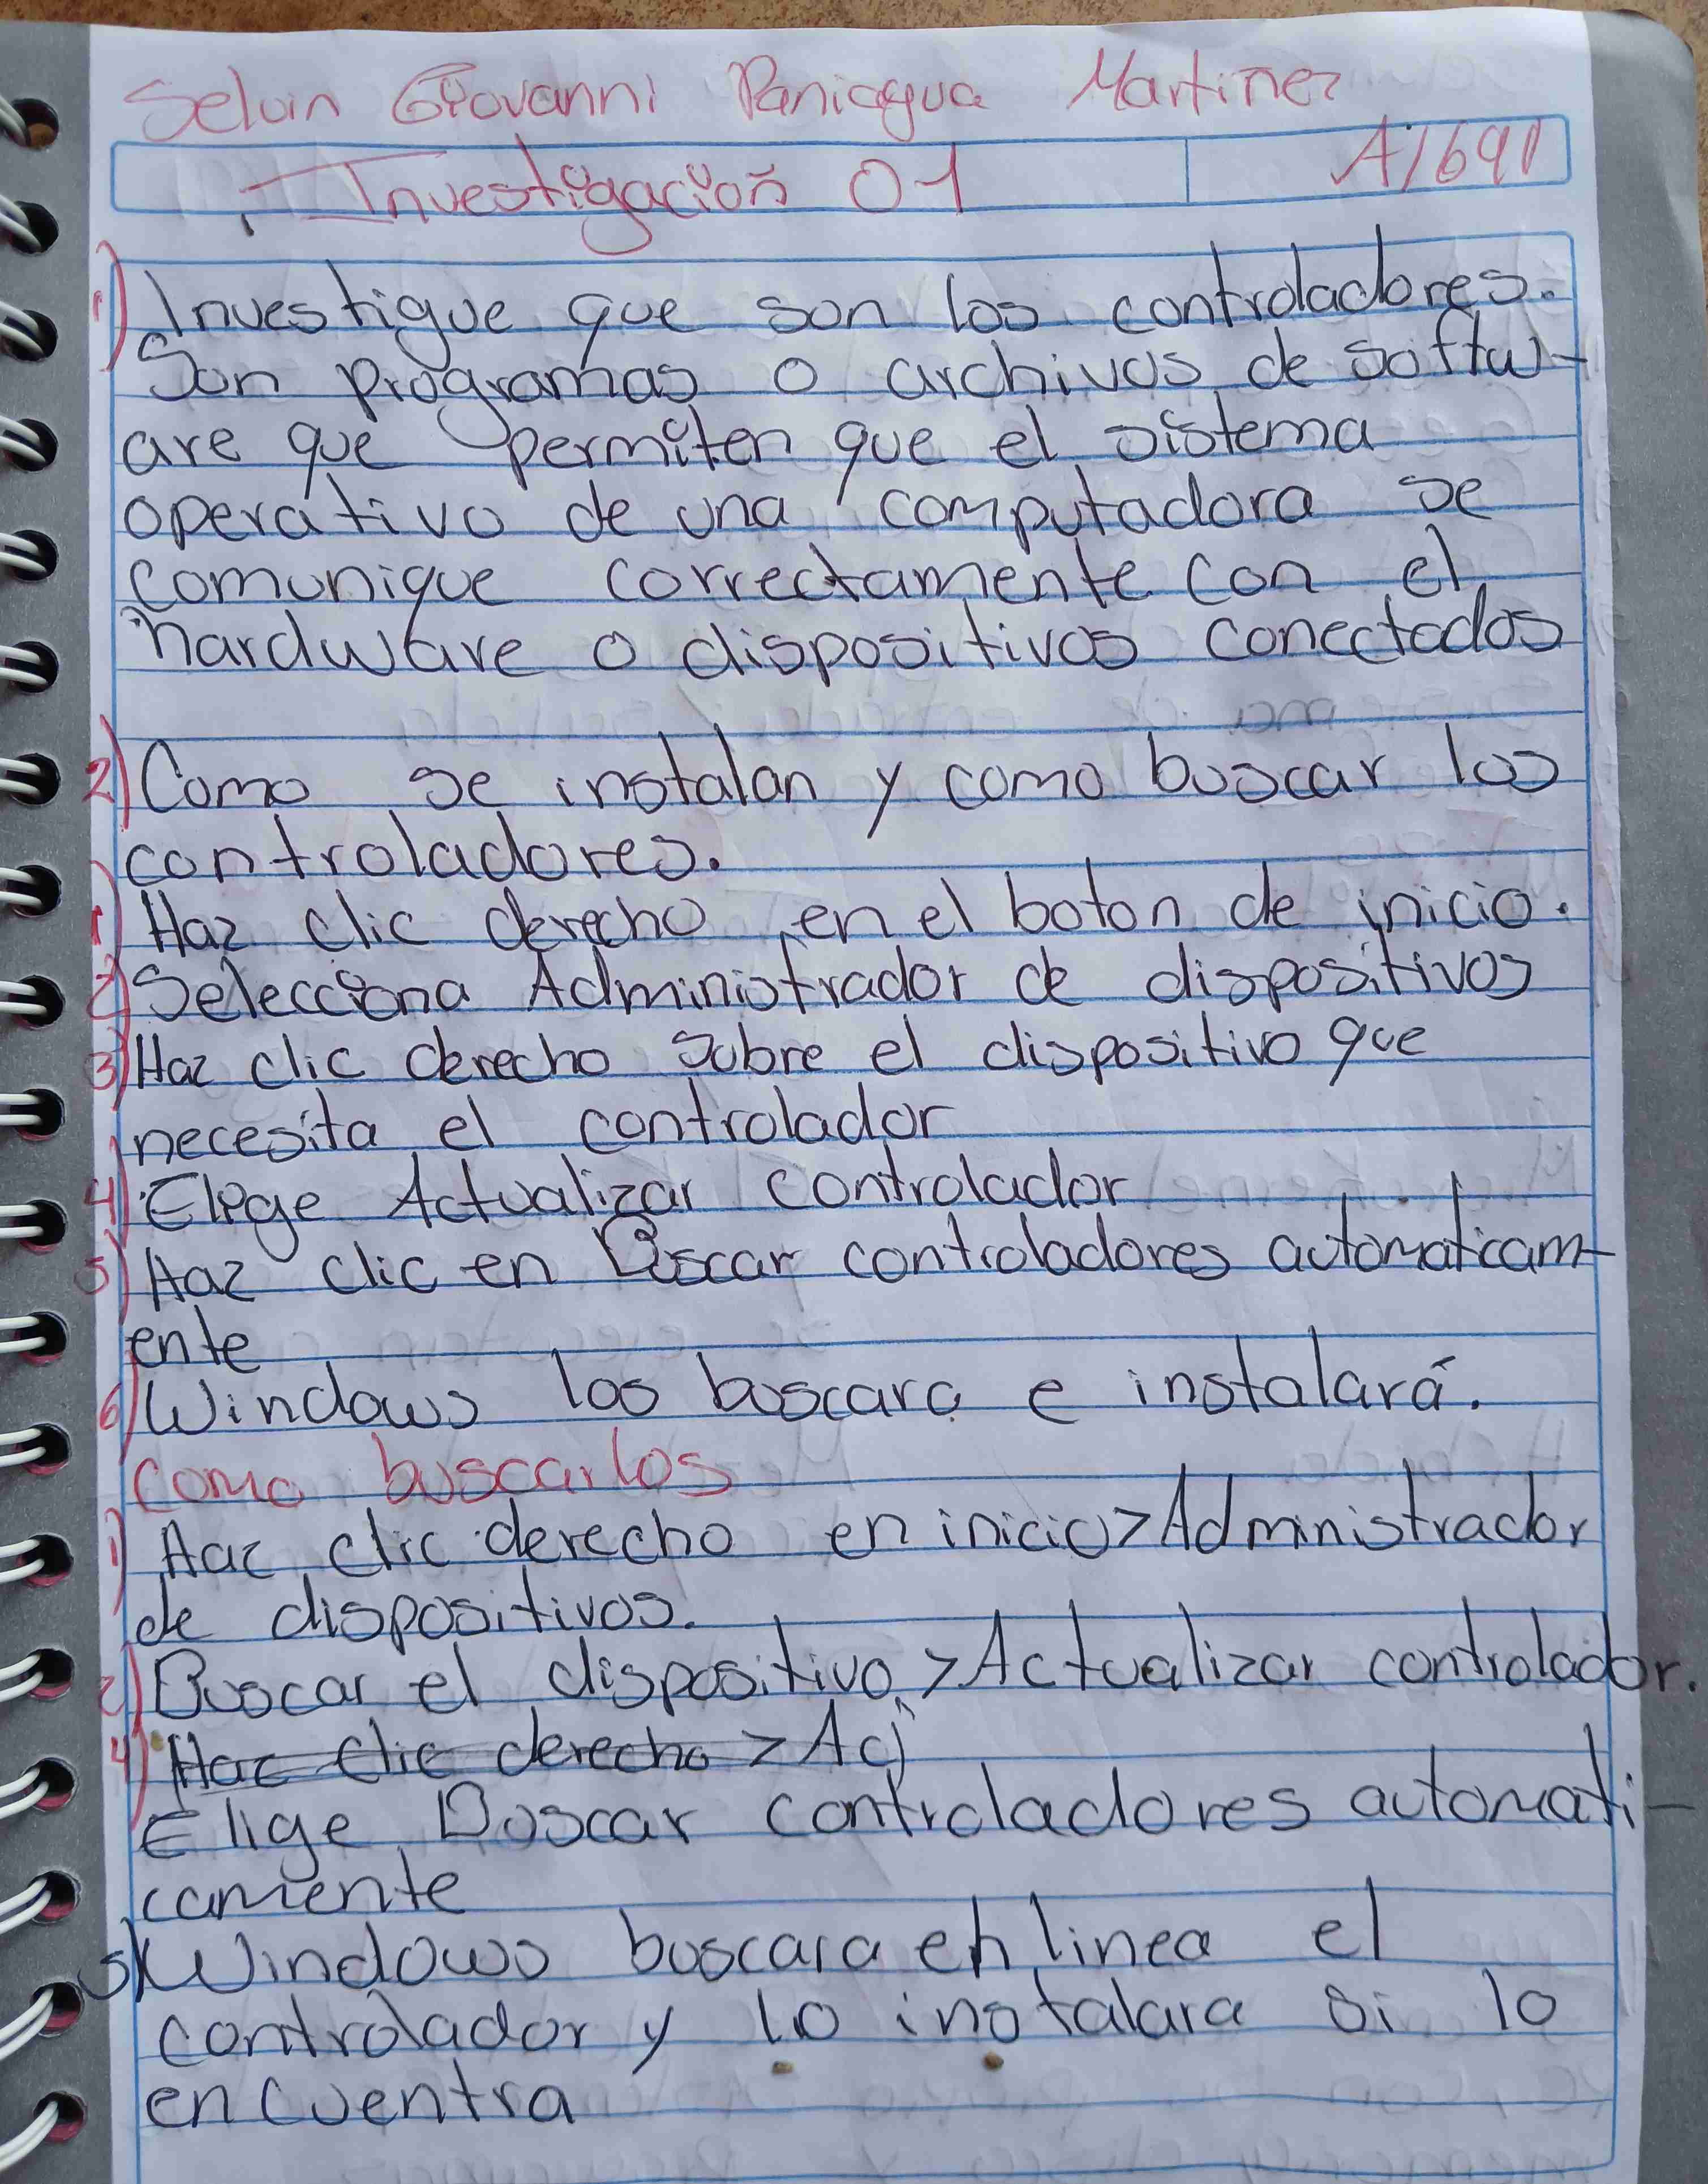 Selvin Giovanni Paniagua Martinez
Investigación 01 A1691
1) Investigue que son los controladores.
Son programas o archivos de softw-
are que permiten que el sistema
operativo de una computadora se
comunique correctamente con el
hardware o dispositivos conectados
2) Como se instalan y como buscar los
controladores.
1) Haz clic derecho en el boton de inicio.
2) Selecciona Administrador de dispositivos
3) Haz clic derecho sobre el dispositivo que
necesita el controlador
4) Elige Actualizar controlador
5) Haz clic en Buscar controladores automaticam-
ente
6) Windows los buscara e instalará.
como buscarlos
1) Haz clic derecho en inicio > Administrador
de dispositivos.
2) Buscar el dispositivo > Actualizar controlador.
4) Haz clic derecho > Act
Elige Buscar controladores automati-
camente
5) Windows buscara en linea el
controlador y lo instalara si lo
encuentra